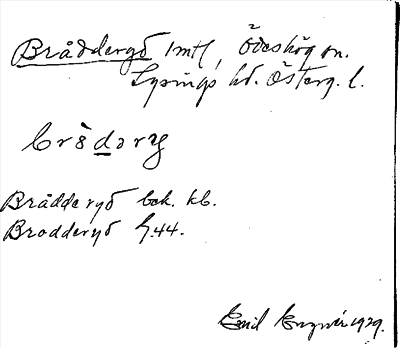 Bråddergd 1 mtl, Ödeshög sn.
Lysings hd. Österg. l.
brå̀dəry
Bråddergd bek. kb.
Brodderyd G.44.
Emil 1929.